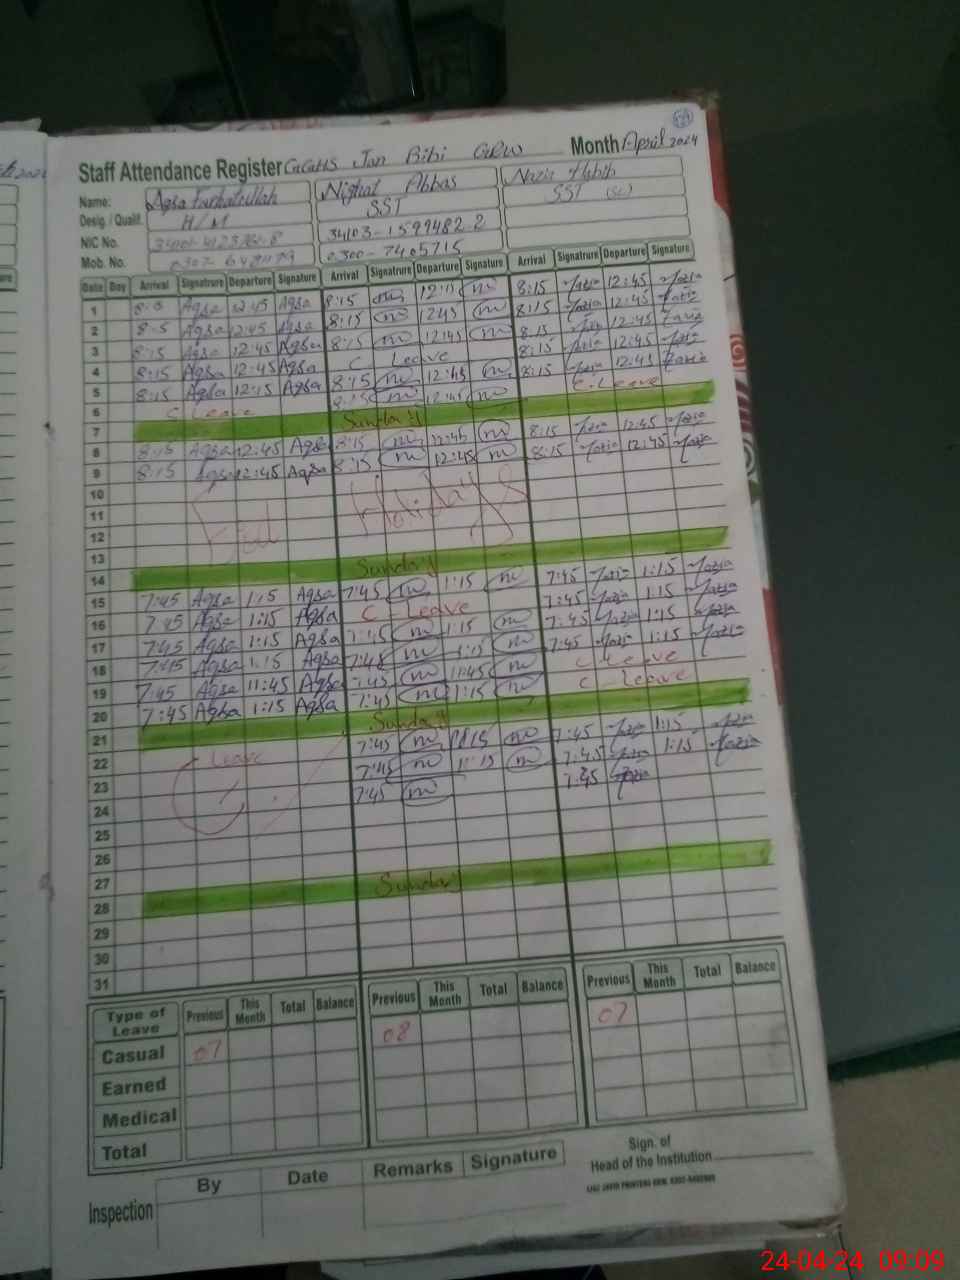 Staff Attendance Register GGHS Jan Bibi GRW Month April 2024
Name: Aqsa Farhatullah Nighat Abbas Nazia Habib
Desig. / Qualif. H/M SST SST (sc)
NIC No. 34103-1599482-2
Mob. No. 0300-7405715
Date Day Arrival Signature Departure Signature Arrival Signature Departure Signature Arrival Signature Departure Signature
1 Aqsa 12:45 Aqsa 8:15 8:15 Nazia 12:45 Nazia
2 8:5 Aqsa 12:45 Aqsa 8:15 12:45 8:15 Nazia 12:45 Nazia
3 8:15 Aqsa 12:45 Aqsa 8:15 12:45 8:15 Nazia 12:45 Nazia
4 8:15 Aqsa 12:45 Aqsa C Leave 8:15 Nazia 12:45 Nazia
5 8:15 Aqsa 12:15 Aqsa 8:15 12:45 8:15 Nazia 12:45 Nazia
6 C Leave 8:15 12:45 C. Leave
7 Sunday
8 8:15 Aqsa 12:45 Aqsa 8:15 12:45 8:15 Nazia 12:45 Nazia
9 8:15 Aqsa 12:45 Aqsa 8:15 12:45 8:15 Nazia 12:45 Nazia
10
11 Eid Holidays
12
13
14 Sunday
15 7:45 Aqsa 1:15 Aqsa 7:45 1:15 7:45 Nazia 1:15 Nazia
16 7:45 Aqsa 1:15 Aqsa C Leave 7:45 Nazia 1:15 Nazia
17 7:45 Aqsa 1:15 Aqsa 7:45 1:15 7:45 Nazia 1:15 Nazia
18 7:45 Aqsa 1:15 Aqsa 7:45 1:15 7:45 Nazia 1:15 Nazia
19 7:45 Aqsa 11:45 Aqsa 7:45 11:45 C Leave
20 7:45 Aqsa 1:15 Aqsa 7:45 1:15 C Leave
21 Sunday
22 Leave 7:45 7:45 Nazia 1:15 Nazia
23 7:45 1:15 7:45 Nazia 1:15 Nazia
24 7:45 7:45 Nazia
25
26
27
28 Sunday
29
30
31
Type of Leave Previous This Month Total Balance Previous This Month Total Balance Previous This Month Total Balance
Casual 07 08 07
Earned
Medical
Total
Sign. of
Head of the Institution
Inspection By Date Remarks Signature
24-04-24 09:09